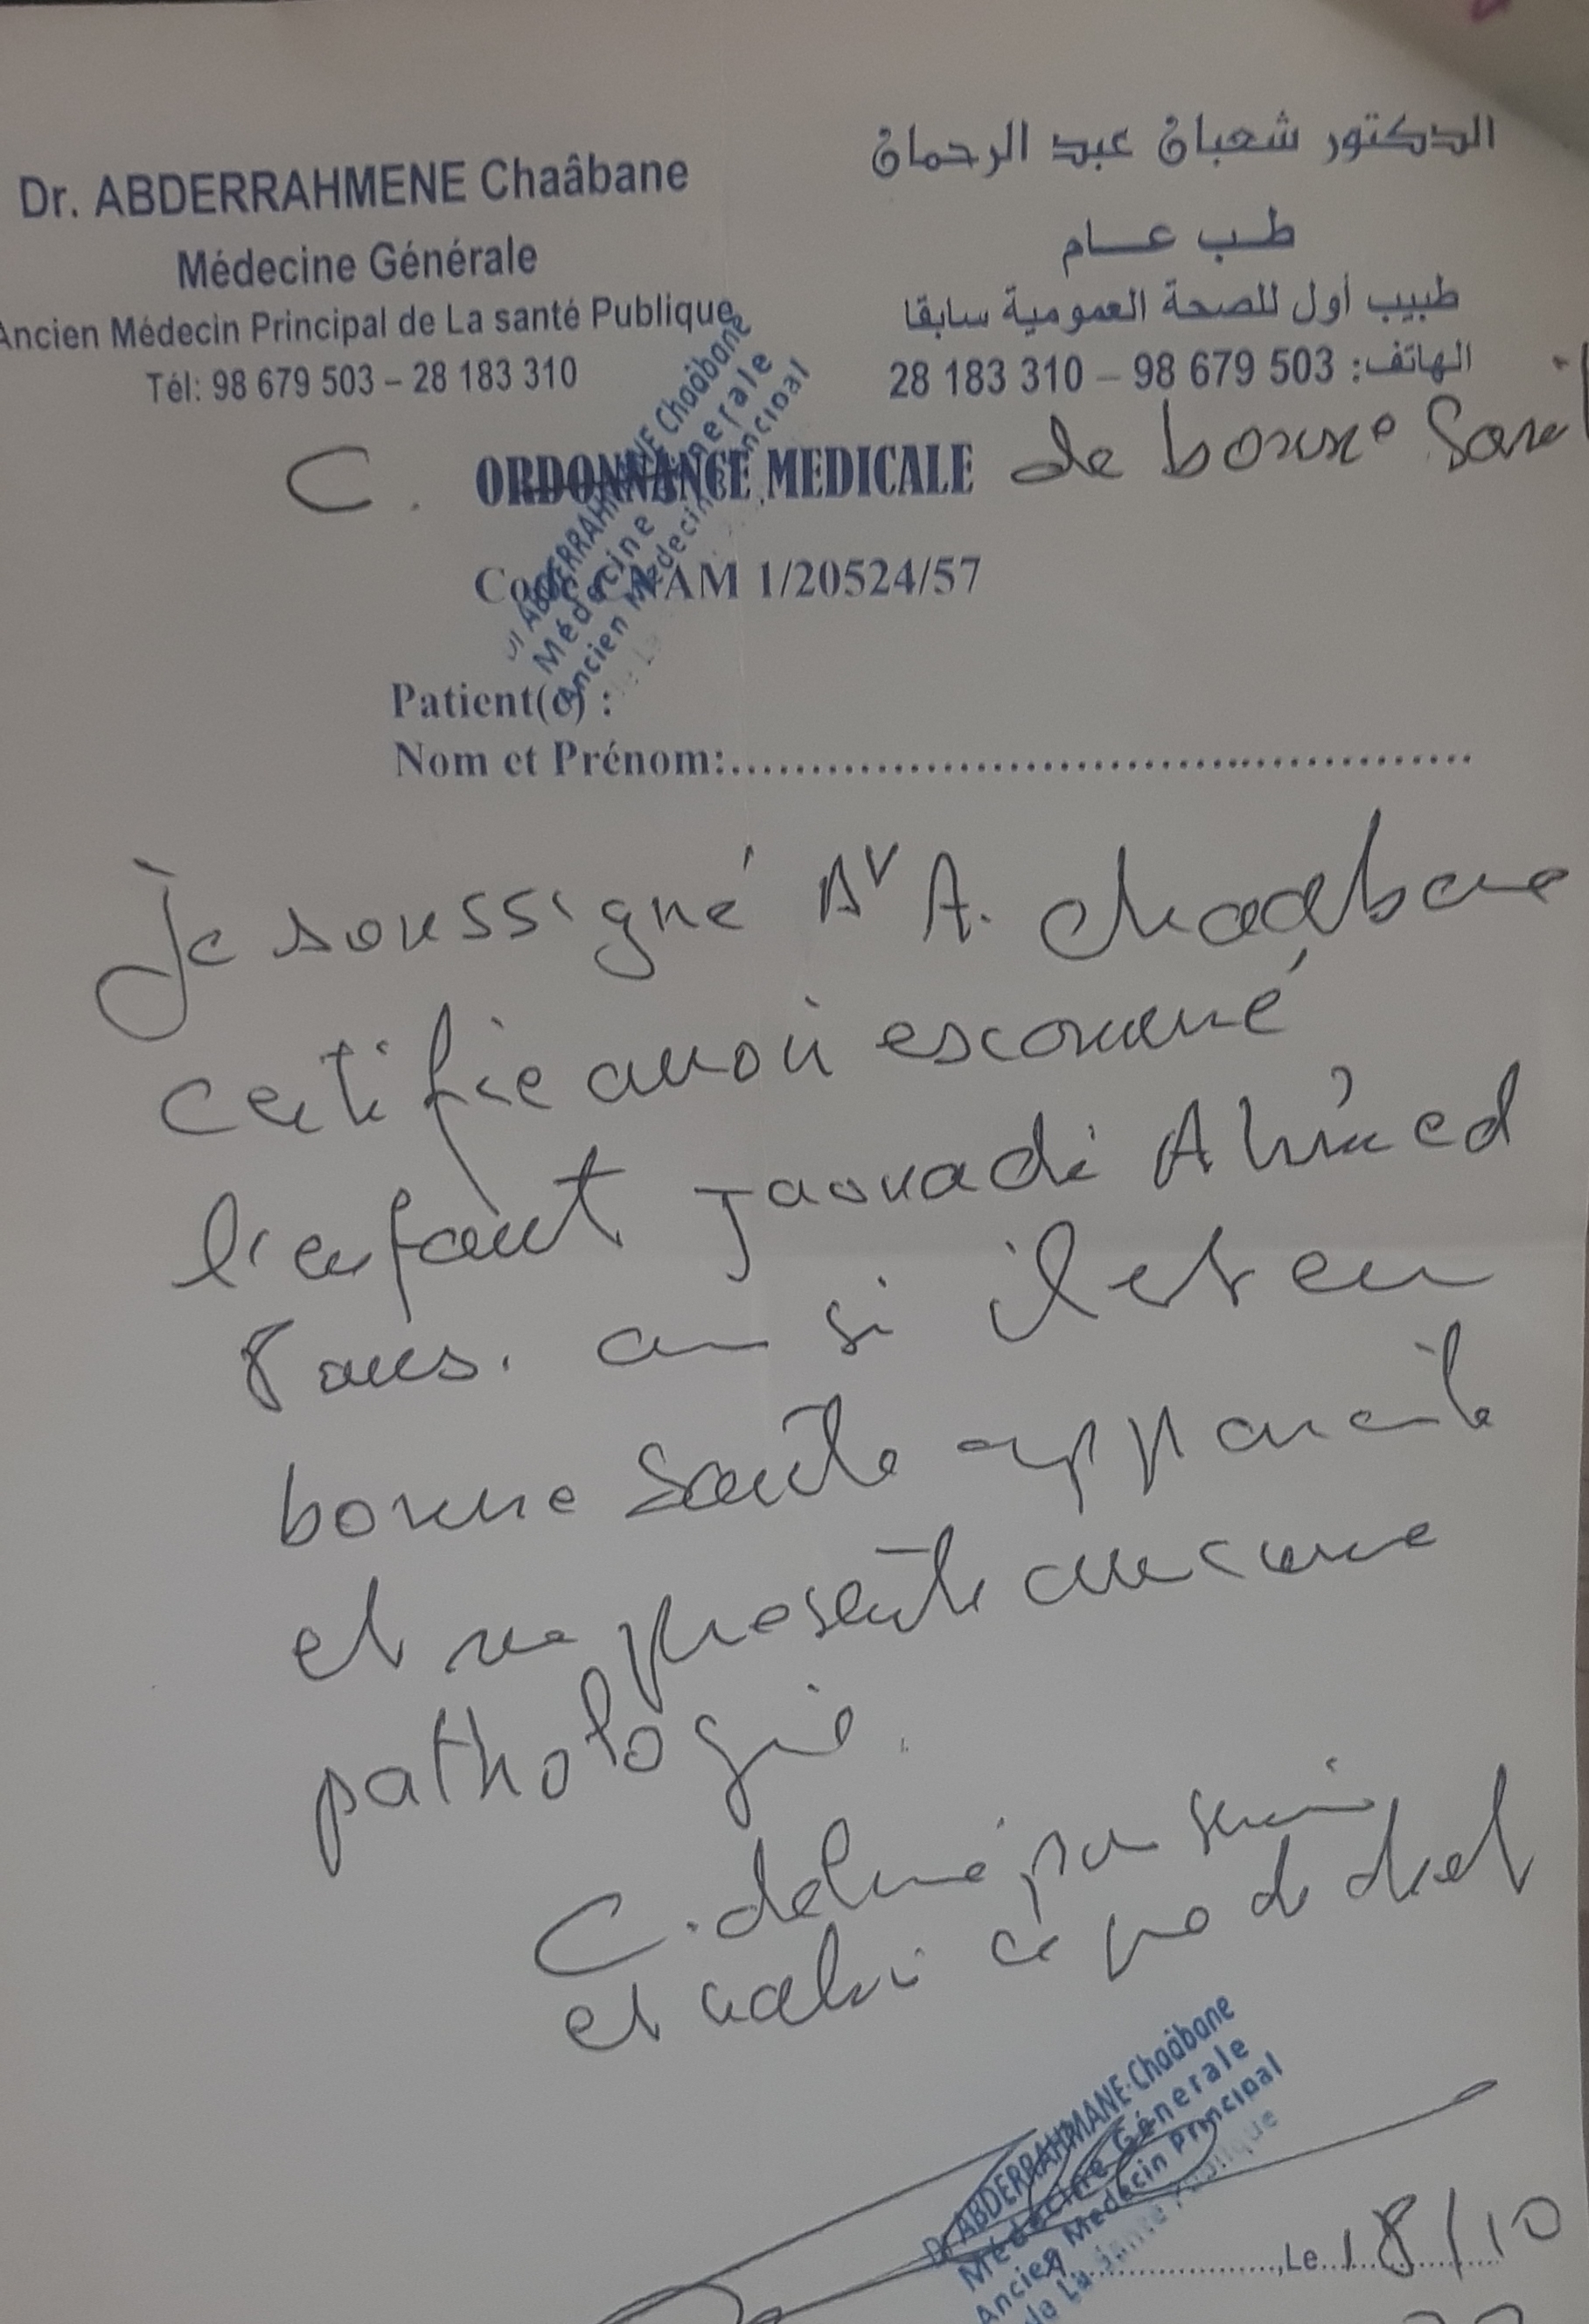 Dr. ABDERRAHMENE Chaâbane
Médecine Générale
Ancien Médecin Principal de La santé Publique
Tél: 98 679 503 – 28 183 310
الدكتور شعبان عبد الرحمان
طب عام
طبيب أول للصحة العمومية سابقا
الهاتف: 98 679 503 – 28 183 310
C. ORDONNANCE MEDICALE de bonne Santé
Code CNAM 1/20524/57
Dr ABDERRAHMANE Chaâbane
Médecine Génerale
Ancien Medecin Principal
de La
Patient(e) :
Nom et Prénom:
Je soussigné Dr A. Chaabane
certifie avoir examiné
l'enfant Jaouadi Ahmed
8 ans. ainsi il est en
bonne Santé apparente
et ne présente aucune
pathologie.
C. delivré pr servir
et valoir ce que de droit
Dr ABDERRAHMANE Chaâbane
Médecine Génerale
Ancien Medecin Principal
de La Sante Publique
,Le 18/10